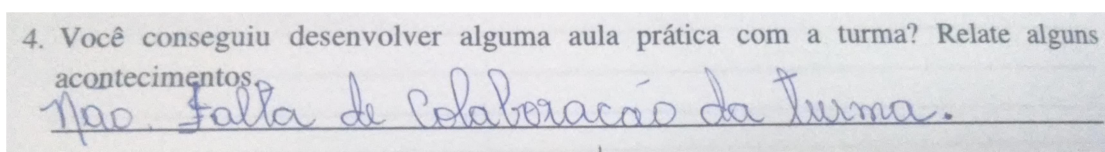 4. Você conseguiu desenvolver alguma aula prática com a turma? Relate alguns
acontecimentos.
Não. Falta de Colaboracão da turma.